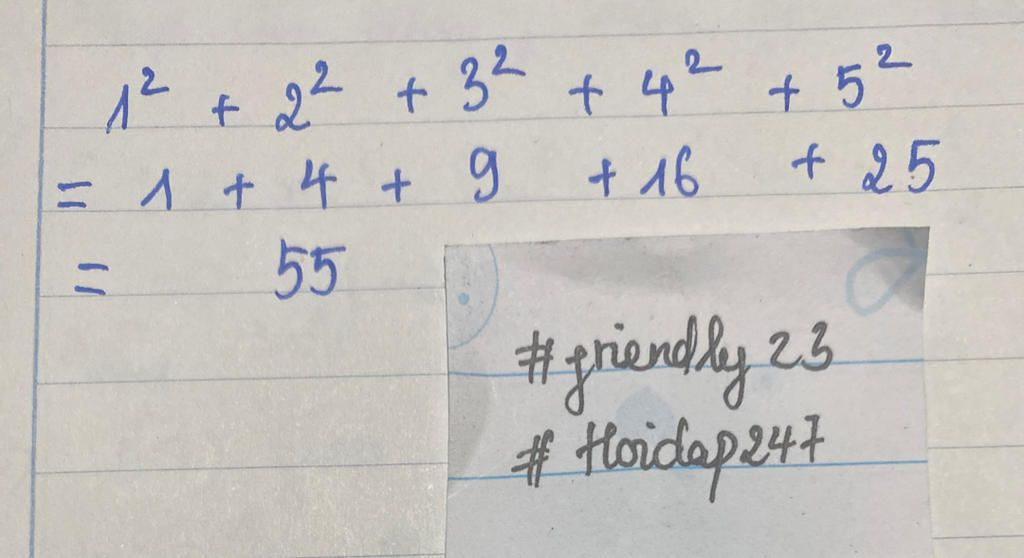 1² + 2² + 3² + 4² + 5²
= 1 + 4 + 9 + 16 + 25
= 55
#friendly23
#Hoidap247